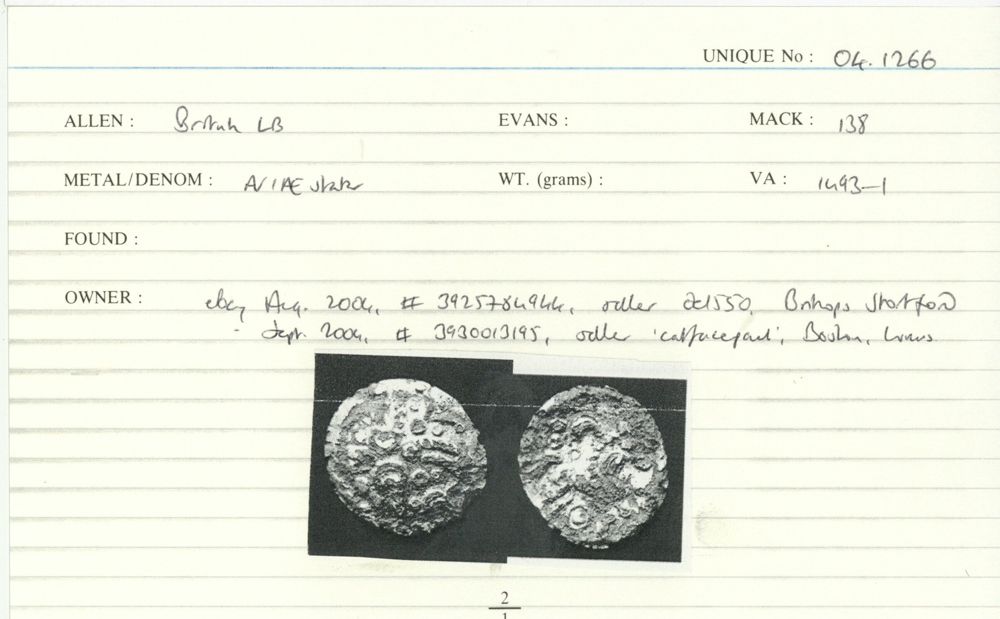 UNIQUE No : 04.1266
ALLEN : British LB EVANS : MACK : 138
METAL/DENOM : AV/AE stater WT. (grams) : VA : 1493-1
FOUND :
OWNER : ebay Aug. 2004, # 3925784944, seller dd1550, Bishops Stortford
- Sept. 2004, # 3930013195, seller 'catfacepaul', Boston, Lincs
2
1